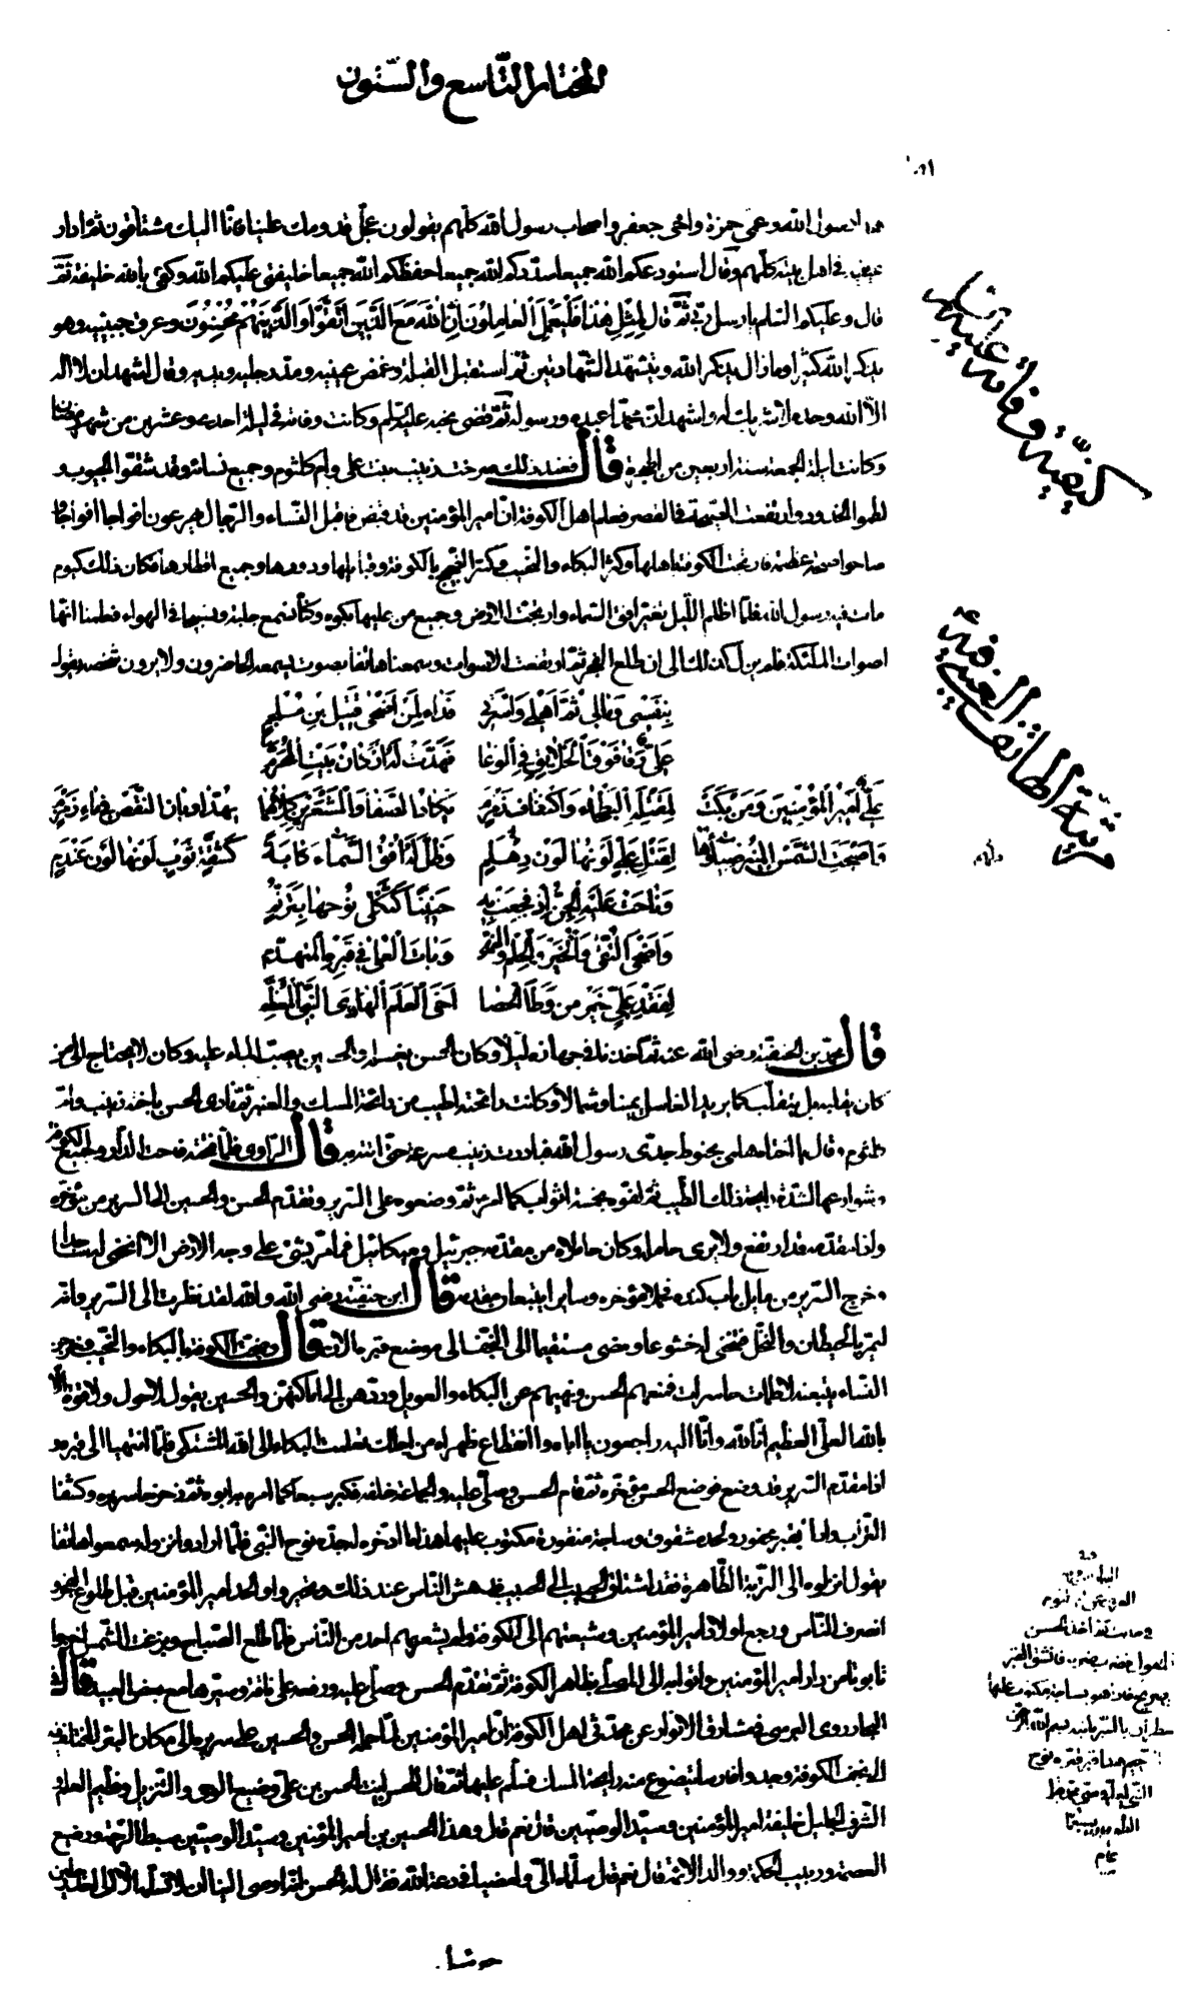 المختار التاسع والستون
رسول الله وعمى حمزة واخى جعفر واصحاب رسول الله كلهم يقولون عجل قدومك علينا فانّا اليك مشتاقون ثم ادار
فى اهل بيته كلهم وقال استودعكم الله جميعا سدّدكم الله جميعا حفظكم الله جميعا خليفتى عليكم الله وكفى بالله خليفة ثمّ
قال وعليكم السّلم يا رسل ربّى ثمّ قال لِمِثْلِ هٰذا فَلْيَعْمَلِ الْعامِلُونَ اِنَّ اللهَ مَعَ الَّذينَ اتَّقَوْا وَالَّذينَ هُمْ مُحْسِنُونَ وعرق جبينه وهو
يذكر الله كثيرا وما زال يذكر الله ويتشهّد الشّهادتين ثمّ استقبل القبلة وغمض عينيه ومدّ رجليه ويديه وقال اشهد ان لا اله
الّا الله وحده لا شريك له واشهد انّ محمّدا عبده ورسوله ثمّ قضى نحبه عليه السّلم وكانت وفاته فى ليلة احدى وعشرين من شهر رمضان
وكانت ليلة الجمعة سنة اربعين من الهجرة قال فعند ذلك صرخت زينب بنت على وام كلثوم وجميع نسائه وقد شقّوا الجيوب و
لطموا الخدود وارتفعت الصّيحة فى القصر فعلم اهل الكوفة انّ امير المؤمنين قد قبض فاقبل النّساء والرّجال يهرعون افواجا افواجا و
صاحوا صيحة عظيمة فارتجت الكوفة باهلها وكثر البكاء والنّحيب وكثر الضّجيج بالكوفة وقبايلها ودورها وجميع اقطارها فكان ذلك كيوم
مات فيه رسول الله فلمّا اظلم اللّيل تغيّر افق السّماء وارتجت الارض وجميع من عليها بكوه وكنّا نسمع جلبة وتسبيحا فى الهواء فعلمنا انّها
اصوات الملئكة فلم يزل كذلك الى ان طلع الفجر ثمّ ارتفعت الاصوات وسمعنا هاتفا بصوت يسمعه الحاضرون ولا يرون شخصه يقول
بِنَفْسى وَمالى ثُمَّ اَهْلى وَاُسْرَتى فِداءٌ لِمَنْ اَضْحى قَتيلَ بْنِ مُلْجَمٍ
عَلىّ رَقا فَوْقَ الْخَلائِقِ فِى الْوَغا فَهَدَّتْ لَهُ اَرْكانُ بَيْتِ الْمُحَرَّمِ
عَلىّ اَميرُ الْمُؤْمِنينَ وَمَنْ بَكَتْ لِمَقْتَلِهِ الْبَطْحاءُ وَاَكْنافُ زَمْزَمِ
يَكادُ الصَّفا وَالْمَشْعَرَيْنِ كِلاهُما يُهَدّا وَبانَ النَّقْصُ فى ماءِ زَمْزَمِ
وَاَصْبَحَتِ الشَّمْسُ الْمُنيرُ ضِياؤُها لِقَتْلِ عَلِىٍّ لَوْنُها لَوْنُ دِهْلَمِ
وَظَلَّ لَهُ اُفُقُ السَّماءِ كَابَةً كَشُقَّةِ ثَوْبٍ لَوْنُها لَوْنُ عَنْدَمِ
وَناحَتْ عَلَيْهِ الْجِنُّ اِذْ فُجِعَتْ بِهِ حَنينًا كَثَكْلى نَوْحُها بِتَرَنُّمِ
وَاَضْحَى التُّقى وَالْخَيْرُ وَالْحِلْمُ وَالنُّهى وَباتَ الْعُلى فى قَبْرِهِ الْمُتَهَدِّمِ
لِفَقْدِ عَلِىٍّ خَيْرِ مَنْ وَطَأَ الْحَصا اَخَى الْعَلَمِ الْهادِى النَّبِىِّ الْمُعَظَّمِ
قال محمّد بن الحنفيّة رضى الله عنه ثمّ اخذنا فى جهازه ليلا وكان الحسن يغسله والحسين يصبّ الماء عليه وكان لا يحتاج الى من
يقلبه بل يتقلّب كما يريد الغاسل يمينا وشمالا وكانت رائحته اطيب من رائحة المسك والعنبر ثمّ نادى الحسن باخته زينب وامّ
كلثوم وقال يا اختاه هلمى بحنوط جدّى رسول الله فبادرت زينب مسرعة حتى اتته به قال الرّاوى فلمّا فتحته فاحت الدّار وجميع الكوفة
وشوارعها لشدّة رايحة ذلك الطّيب ثمّ لفّوه بخمسة اثواب كما امر ثمّ وضعوه على السّرير وتقدّم الحسن والحسين الى السّرير من مؤخّره
واذا مقدّمه قد ارتفع ولا يرى حامله وكان حاملاه من مقدّمه جبرئيل وميكائيل فما مرّ بشىء على وجه الارض الّا انحنى له ساجدا
وخرج السّرير من مايل باب كنده فحملا مؤخّره وسارا يتبعان مقدّمه قال ابن حنفيّة رضى الله والله لقد نظرت الى السّرير وانّه
ليمرّ بالحيطان والنّخل فتنحنى له خشوعا ومضى مستقيما الى النّجف الى موضع قبره الان قال وضجّت الكوفة بالبكاء والنّحيب وخرجن
النّساء يتبعنه لاطمات حاسرات فمنعهم الحسن ونهيهم عن البكاء والعويل وردّهنّ الى اماكنهنّ والحسين يقول لا حول ولا قوّة الّا
بالله العلىّ العظيم انّا لله وانّا اليه راجعون يا اباه وا انقطاع ظهراه من اجلك تعلمت البكاء الى الله المشتكى فلمّا انتهيا الى قبره و
اذا مقدّم السّرير قد وضع فوضع الحسن مؤخّره ثمّ قام الحسن وصلّى عليه والجماعة خلفه فكبّر سبعا كما امره به ابوه ثمّ زحزحنا سريره وكشفنا
التّراب واذا بقبر محفور ولحد مشقوق وساجة منقورة مكتوب عليها هذا ما ادّخره له جدّه نوح النّبى فلمّا ارادوا نزوله سمعوا هاتفا
يقول انزلوه الى التّربة الطّاهرة فقد اشتاق الحبيب الى الحبيب فدهش النّاس عند ذلك وتحيّروا والحد امير المؤمنين قبل طلوع الفجر و
انصرف النّاس ورجع اولاد امير المؤمنين وشيعتهم الى الكوفة ولم يشعر بهم احد من النّاس فلمّا طلع الصّباح وبزغت الشّمس اخرجوا
تابوتا من دار امير المؤمنين واتوا به الى المصلّى بظاهر الكوفة ثمّ تقدّم الحسن وصلّى عليه ورفعه على ناقة وسيّرها مع بعض العبيد قال فى
البحار روى البرسى فى مشارق الانوار عن محدّثى اهل الكوفة انّ امير المؤمنين لمّا حمله الحسن والحسين على سريره الى مكان البئر المختلف فيه
الى نجف الكوفة وجدوا فارسا يتضوّع منه رايحة المسك فسلّم عليهما ثمّ قال للحسن انت الحسن بن علىّ رضيع الوحى والتّنزيل وفطيم العلم و
الشّرف الجليل خليفة امير المؤمنين وسيّد الوصيّين قال نعم قال وهذا الحسين بن امير المؤمنين وسيّد الوصيّين سبط الرّحمة ورضيع
العصمة وربيب الحكمة ووالد الائمّة قال نعم قال سلّماه الىّ وامضيا فى دعة الله فقال له الحسن انّه اوصى الينا ان لا نسلّم الّا الى احد رجلين
كيفيّة وفاته عليه السلم
مرثية الهاتف الغيبى فيه ع